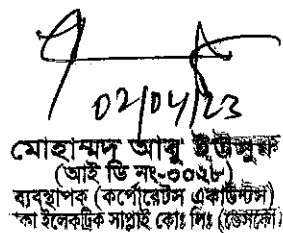 02/04/23
মোহাম্মদ আবু ইউসুফ
(আই ডি নং-০০২৮)
ব্যবস্থাপক (কর্পোরেটস একাউন্টস)
কা ইলেকট্রিক সাপ্লাই কোঃ লিঃ (ডেসকো)